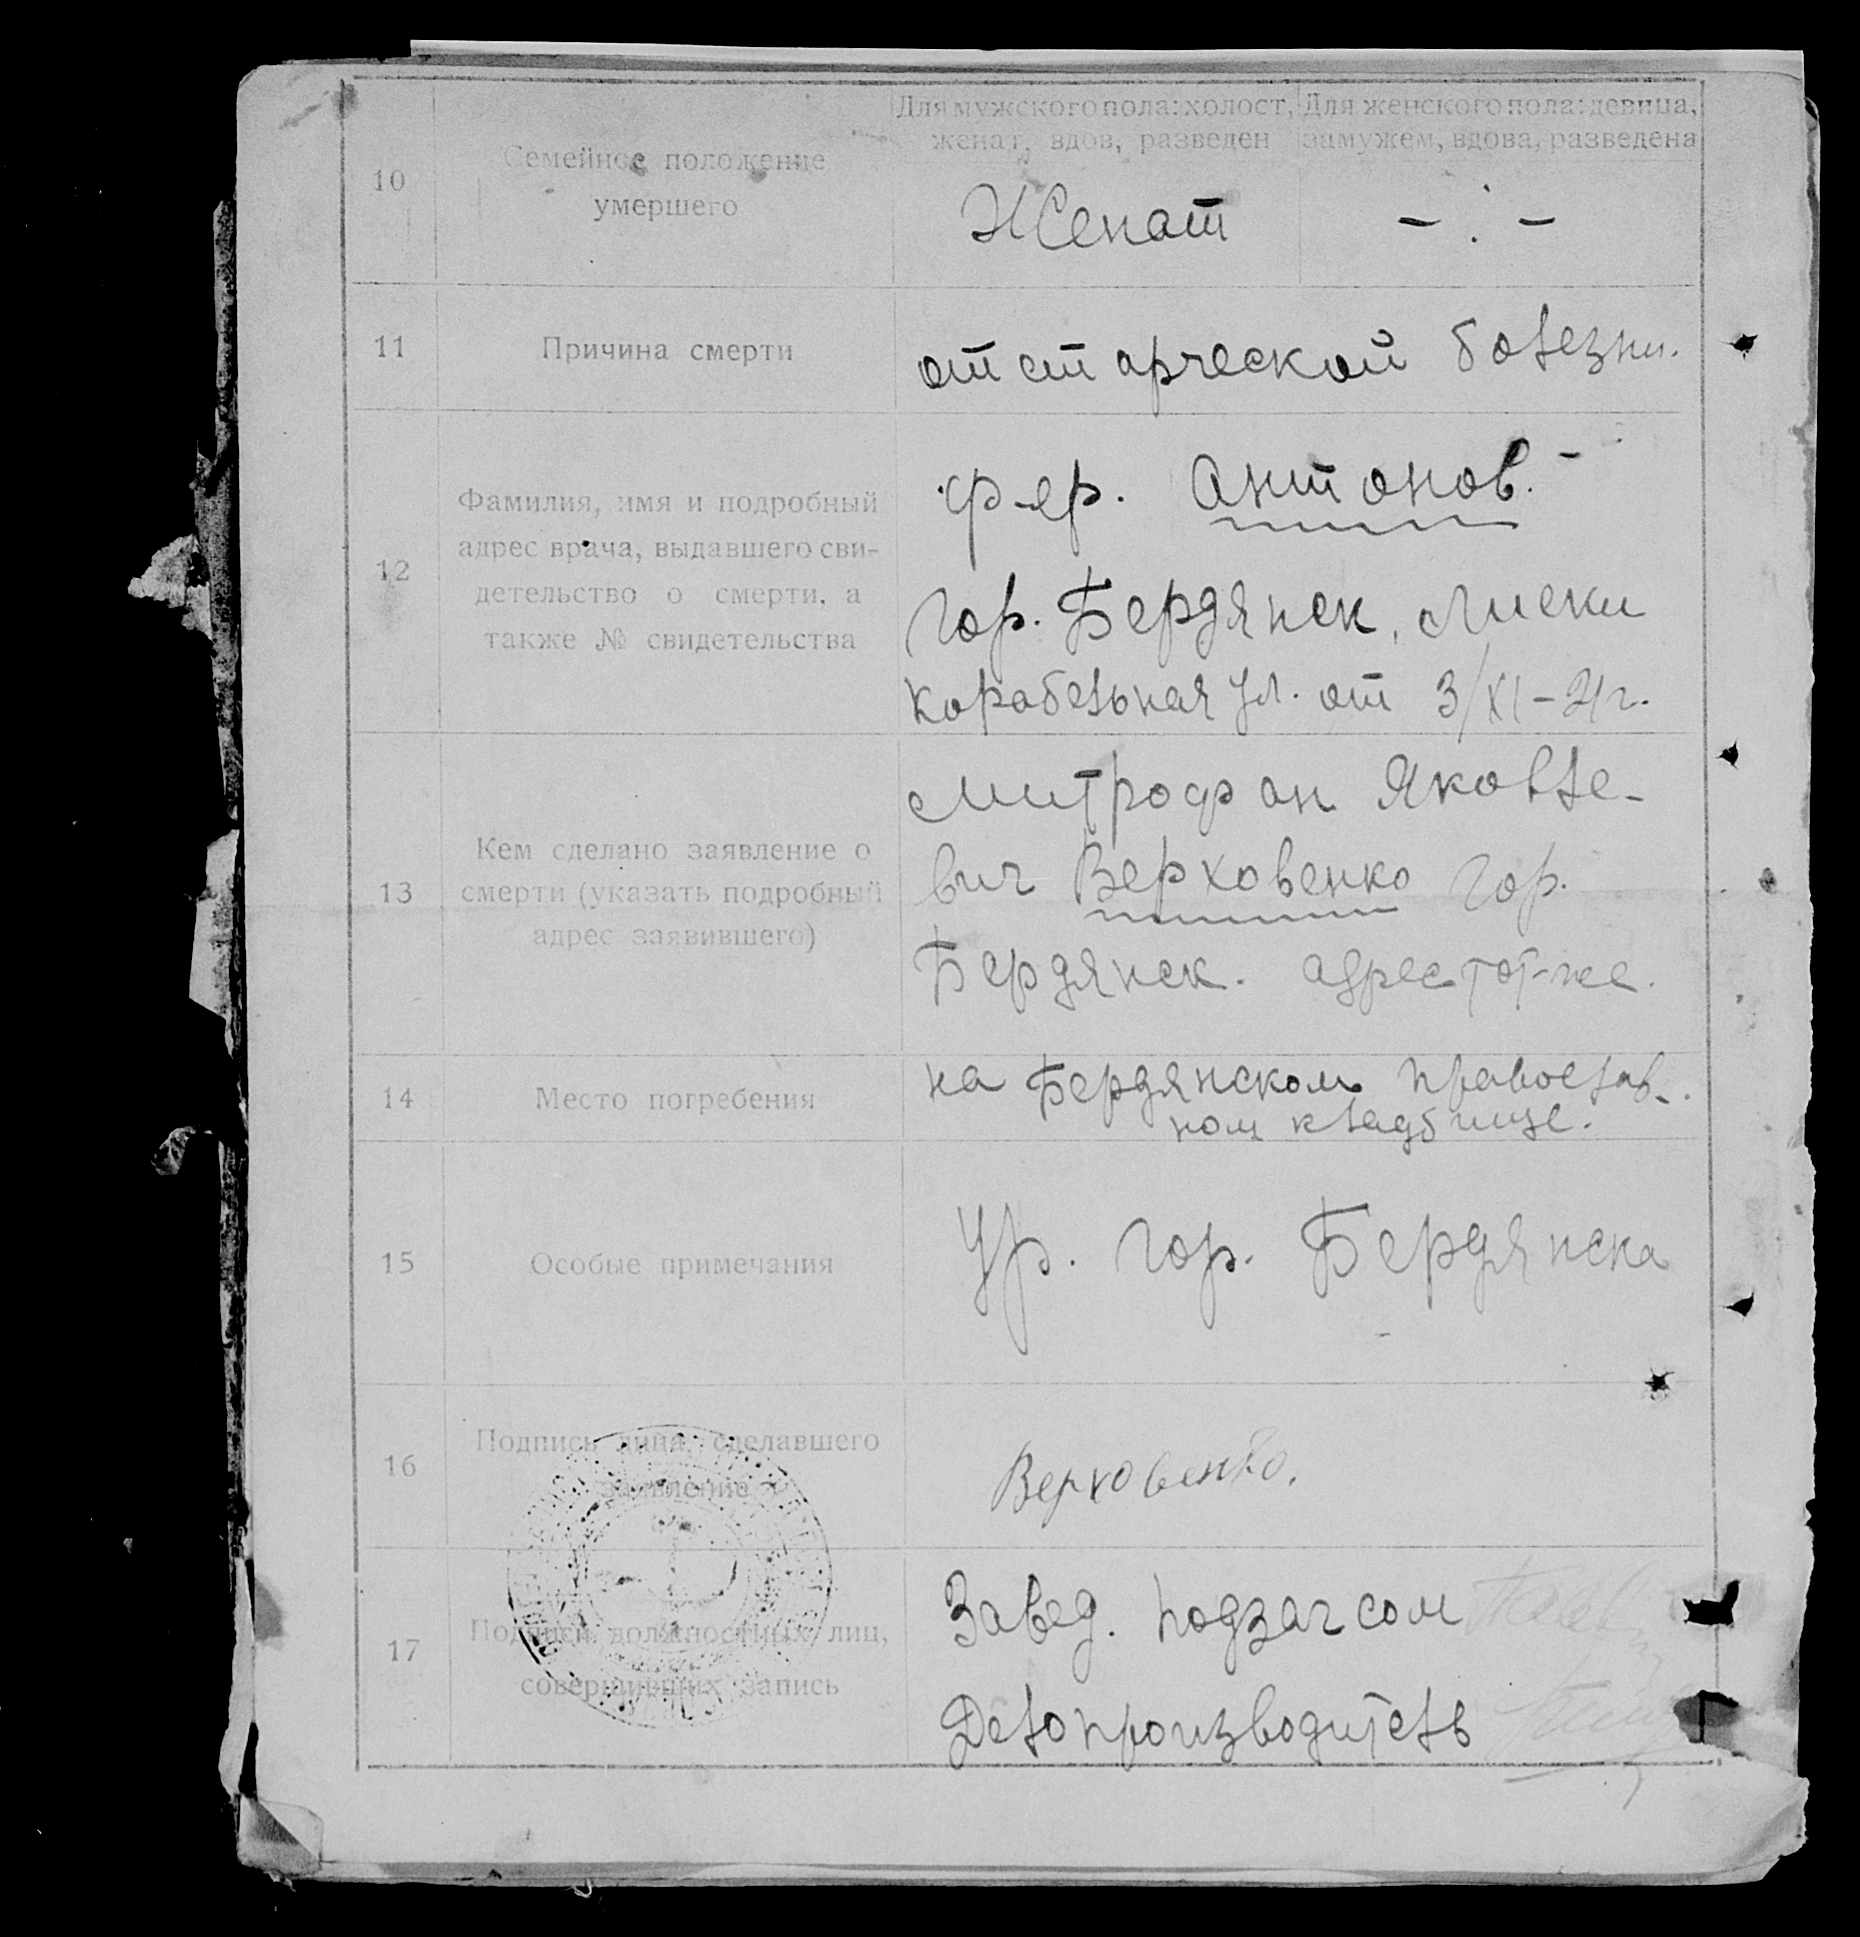 Для мужского пола: холост, Для женского пола: девица,
женат, вдов, разведен замужем, вдова, разведена
10 Семейное положение
умершего
Женат - . -
11 Причина смерти от старческой болезни.
12 Фамилия, имя и подробный
адрес врача, выдавшего сви-
детельство о смерти, а
также № свидетельства
ф-ер. Антонов. -
гор. Бердянск, Лиски
Корабельная ул. от 3/XI-21г.
13 Кем сделано заявление о
смерти (указать подробный
адрес заявившего)
Митрофан Яковле-
вич Верховенко гор.
Бердянск. адрес тот-же.
14 Место погребения
на Бердянском православ-
ном кладбище.
15 Особые примечания Ур. гор. Бердянска
16 Подпись лица, сделавшего
заявление
Верховенко.
17 Подписи должностных лиц,
совершивших запись
Завед. подзагсом
Делопроизводитель